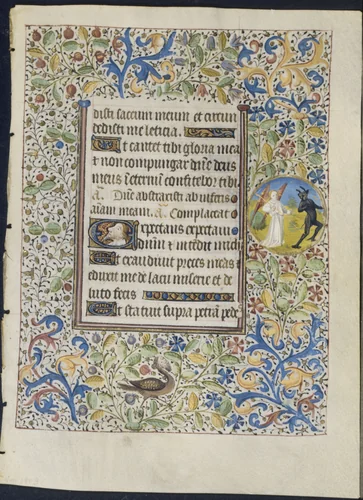 disti saccum meum et circun
dedisti me leticia.
Ut cantet tibi gloria mea
et non compungar dñe deus
meus ineternum confitebor tibi.
A. Dñe abstraxisti ab inferis
aiam meam. A. Complaceat
Expectans expectaui
dñum et intendit michi
Et exaudiuit preces meas et
eduxit me de lacu miserie et de
luto fecis
Et statuit supra petram pede